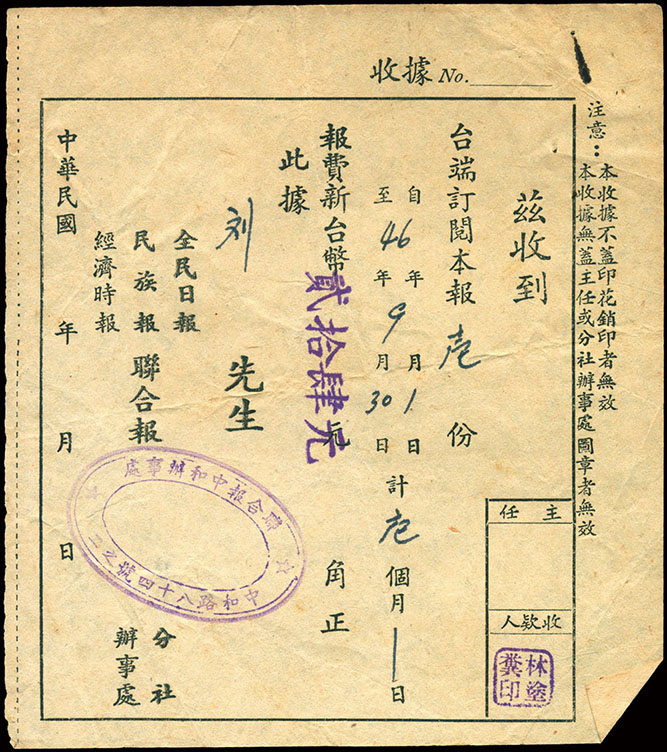 收據 No.
注意：本收據不蓋印花銷印者無效
本收據無蓋主任或分社辦事處圖章者無效
茲收到
台端訂閱本報壱份
自
至
46
年
年
9
月
月
1
30
日
日
計壱個月
日
報費新台幣貳拾肆元
元
角正
此據
刘先生
全民日報
民族報
經濟時報
聯合報
分社
辦事處
中華民國年月日
主任
收欵人
林塗
糞印
聯合報中和辦事處
中和路八十四號之